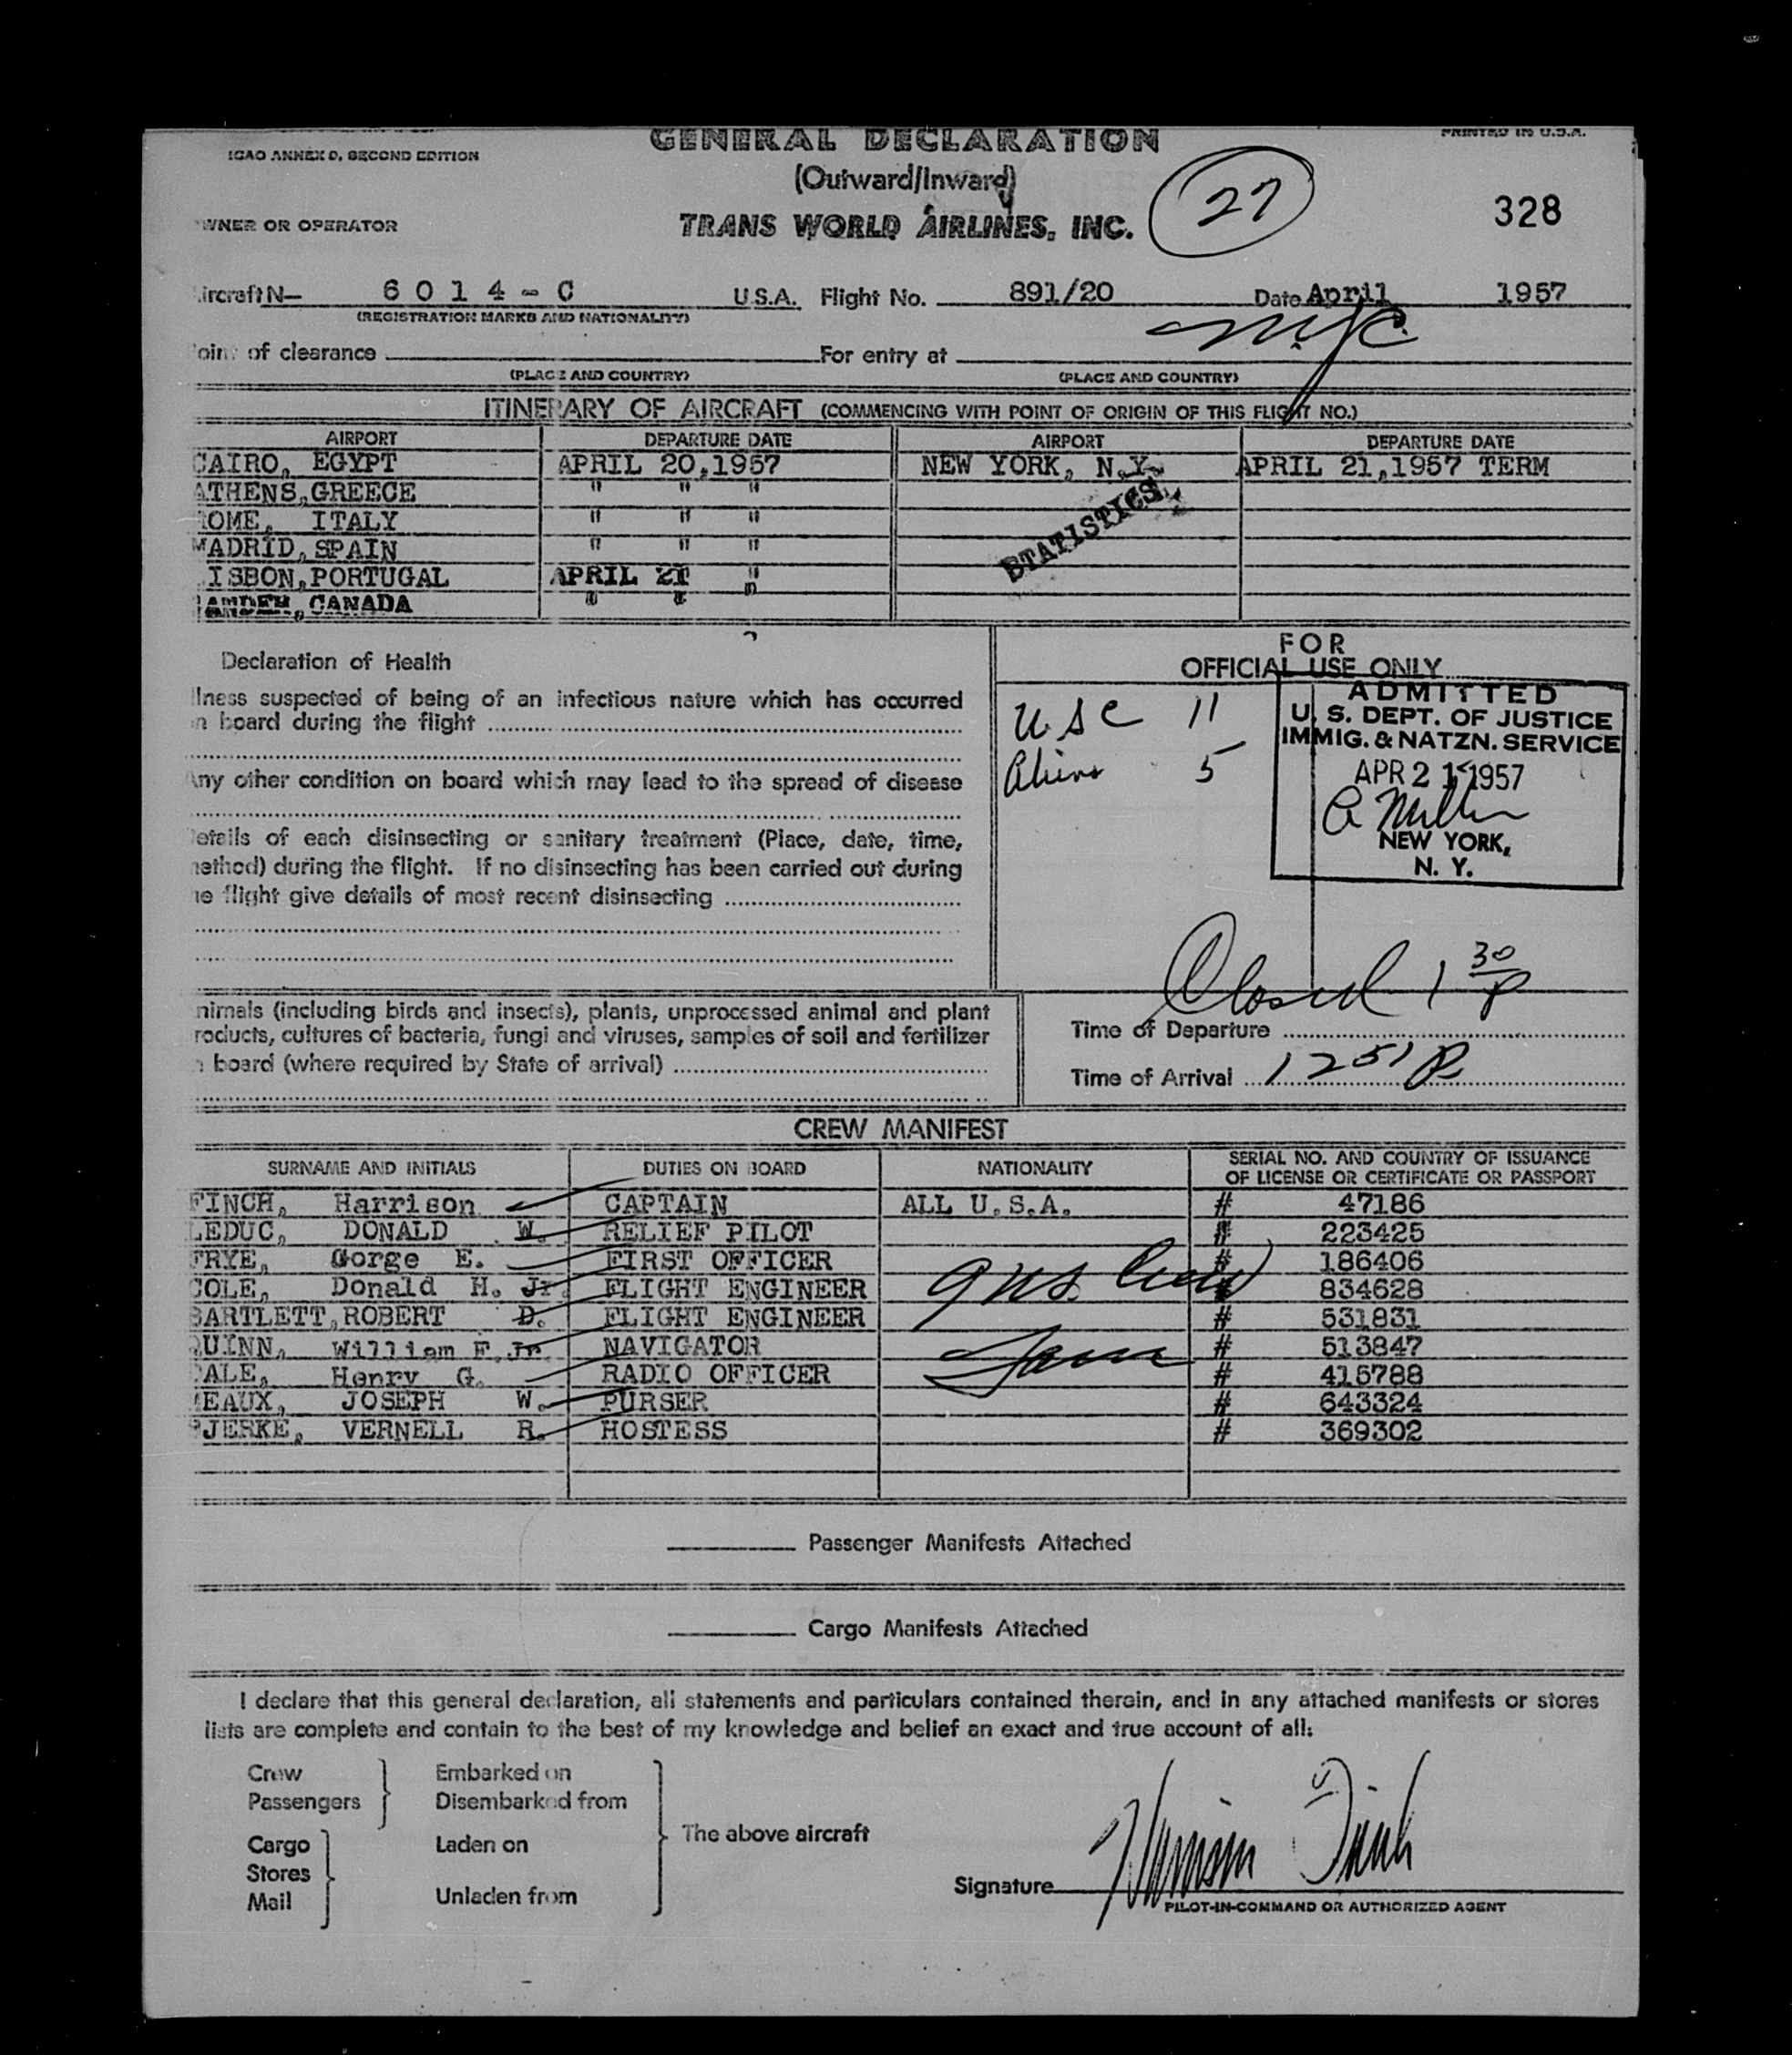 GENERAL DECLARATION
PRINTED IN U.S.A.
ICAO ANNEX 9, SECOND EDITION
(Outward/Inward)
27
328
WNER OR OPERATOR
TRANS WORLD AIRLINES, INC.
ircraft N— 6014-C U.S.A. Flight No. 891/20 Date April 1957
(REGISTRATION MARKS AND NATIONALITY)
NYC
oint of clearance For entry at
(PLACE AND COUNTRY) (PLACE AND COUNTRY)
ITINERARY OF AIRCRAFT (COMMENCING WITH POINT OF ORIGIN OF THIS FLIGHT NO.)
AIRPORT DEPARTURE DATE AIRPORT DEPARTURE DATE
CAIRO, EGYPT APRIL 20,1957 NEW YORK, N.Y. APRIL 21,1957 TERM
ATHENS,GREECE " " "
ROME, ITALY " " "
MADRID,SPAIN " " "
ISBON,PORTUGAL APRIL 21 "
CANADA " " "
STATISTICS
Declaration of Health
FOR
OFFICIAL USE ONLY
llness suspected of being of an infectious nature which has occurred
n board during the flight
Any other condition on board which may lead to the spread of disease
etails of each disinsecting or sanitary treatment (Place, date, time,
ethod) during the flight. If no disinsecting has been carried out during
he flight give details of most recent disinsecting
USC 11
Aliens 5
ADMITTED
U. S. DEPT. OF JUSTICE
IMMIG. & NATZN. SERVICE
APR 21 1957
A Miller
NEW YORK,
N. Y.
Closed 1 30 P
nimals (including birds and insects), plants, unprocessed animal and plant
roducts, cultures of bacteria, fungi and viruses, samples of soil and fertilizer
n board (where required by State of arrival)
Time of Departure
Time of Arrival 1251 P
CREW MANIFEST
SURNAME AND INITIALS DUTIES ON BOARD NATIONALITY SERIAL NO. AND COUNTRY OF ISSUANCE
OF LICENSE OR CERTIFICATE OR PASSPORT
FINCH, Harrison CAPTAIN ALL U.S.A. # 47186
LEDUC, DONALD W. RELIEF PILOT # 223425
FRYE, Gorge E. FIRST OFFICER # 186406
COLE, Donald H. Jr. FLIGHT ENGINEER # 834628
BARTLETT,ROBERT D. FLIGHT ENGINEER # 531831
QUINN, William F.Jr NAVIGATOR # 513847
DALE, Henry G. RADIO OFFICER # 415788
EAUX, JOSEPH W. PURSER # 643324
JERKE, VERNELL R. HOSTESS # 369302
9 Crew
Passenger Manifests Attached
Cargo Manifests Attached
I declare that this general declaration, all statements and particulars contained therein, and in any attached manifests or stores
lists are complete and contain to the best of my knowledge and belief an exact and true account of all:
Crew Embarked on
Passengers Disembarked from
Cargo Laden on The above aircraft
Stores
Mail Unladen from
Signature Harrison Finch
PILOT-IN-COMMAND OR AUTHORIZED AGENT